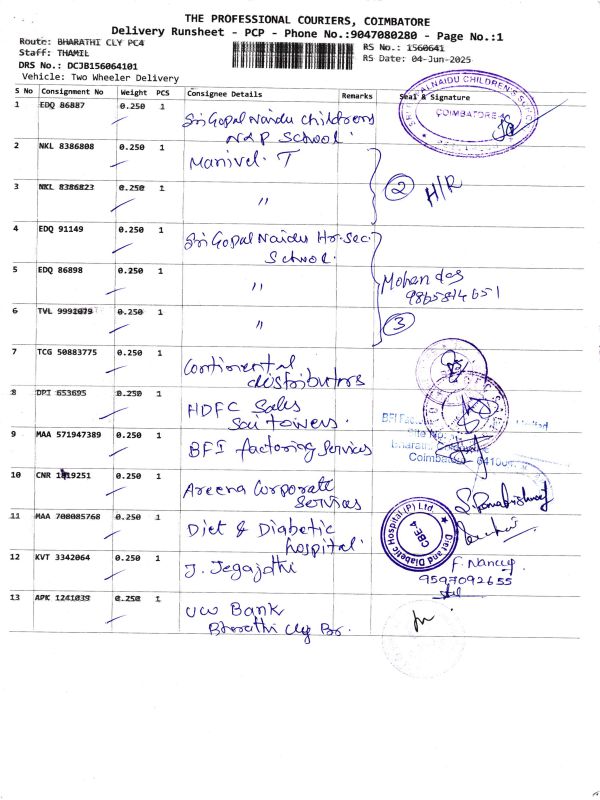 THE PROFESSIONAL COURIERS, COIMBATORE
Delivery Runsheet - PCP - Phone No.:9047080280 - Page No.:1
Route: BHARATHI CLY PC4
Staff: THAMIL
DRS No.: DCJB156064101
Vehicle: Two Wheeler Delivery
RS No.: 1560641
RS Date: 04-Jun-2025
S No Consignment No Weight PCS Consignee Details Remarks Seal & Signature
1 EDQ 86887 0.250 1 Sri Gopal Naidu Childrens
N&P School
COIMBATORE
2 NKL 8386808 0.250 1 Manivel. T
3 NKL 8386823 0.250 1 "
2 H/R
4 EDQ 91149 0.250 1 Sri Gopal Naidu Hr. Sec.
School.
5 EDQ 86898 0.250 1 "
Mohan das
9865814651
6 TVL 9991079 0.250 1 "
3
7 TCG 50883775 0.250 1 Continental
distributors
8 DPI 653695 0.250 1 HDFC Sales
Sai towers.
9 MAA 571947389 0.250 1 BFI factoring Services
BFI
Site No:
Bharathi
Coimbatore 641004
10 CNR 1419251 0.250 1 Areena Corporate
Services
11 MAA 708085768 0.250 1 Diet & Diabetic
hospital.
Diet and Diabetic Hospital (P) Ltd
CBE-4
12 KVT 3342064 0.250 1 J. Jegajothi
F. Nancy
9597092655
13 APK 1241039 0.250 1 UCO Bank
Bharathi Cly Br.